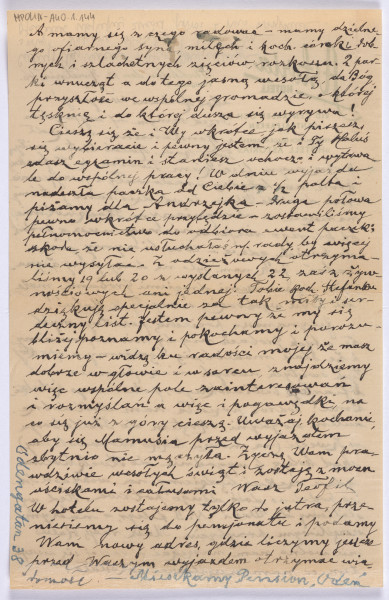 MPOLIA-AGO.1.144
A mamy się z czego radować - mamy dzielne-
go ofiarnego syna, miłych i koch. córeczki dob-
rych i szlachetnych zięciów, rozkoszn. 2 par-
ki wnucząt a do tego jasną wesołą da Bóg
przyszłość we wspólnej gromadzie, o której
tęsknię i do której dusza się wyrywa!
Cieszę się że i Wy wkrótce jak piszesz,
się wybieracie i pewny jestem, że i Ty Haluś
zdasz egzamin i staniesz ochoczo i wytrwa-
le do wspólnej pracy! W dniu wyjazdu
nadeszła paczka od Ciebie z 1/2 palta i
piżamy dla Andrzejka - druga połowa
pewno wkrótce przyjdzie - zostawiliśmy
pełnomocnictwo do odbioru ewent. paczek.
Szkoda, że nie usłuchałaś m. rady by więcej
nie wysyłać. Z odzieżowych otrzyma-
liśmy 19 lub 20 z wysłanych 22 zaś z żyw-
nościowych ani jednej. Tobie koch. Stefanku
dziękuję specjalnie za tak miły i ser-
deczny list. Jestem pewny że my się
bliżej poznamy i pokochamy i porozu-
miemy - widzę ku radości mojej że masz
dobrze w głowie i w sercu, znajdziemy
więc wspólne pole zainteresowań
i rozmyślań a więc i pogawędki na
co się już z góry cieszę. Uważaj kochanie,
aby się Mamusia przed wyjazdem
zbytnio nie męczyła. Życzę Wam pra-
wdziwie wesołych świąt i zostaję z moc
uściskami i całusami Wasz Teofil
W hotelu zostajemy tylko do jutra, prze-
niesiemy się do pensjonatu i podamy
Wam nowy adres, gdzie liczymy jeszcze
przed Waszym wyjazdem otrzymać wia-
domość - Mieszkamy Pension "Odén"
Odengatan 38